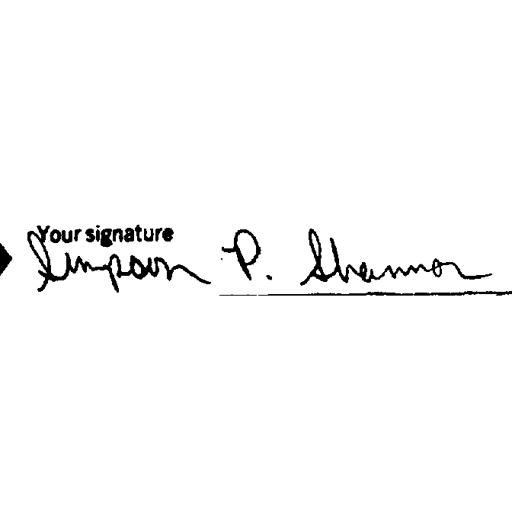 Your signature
Simpson P. Shannon